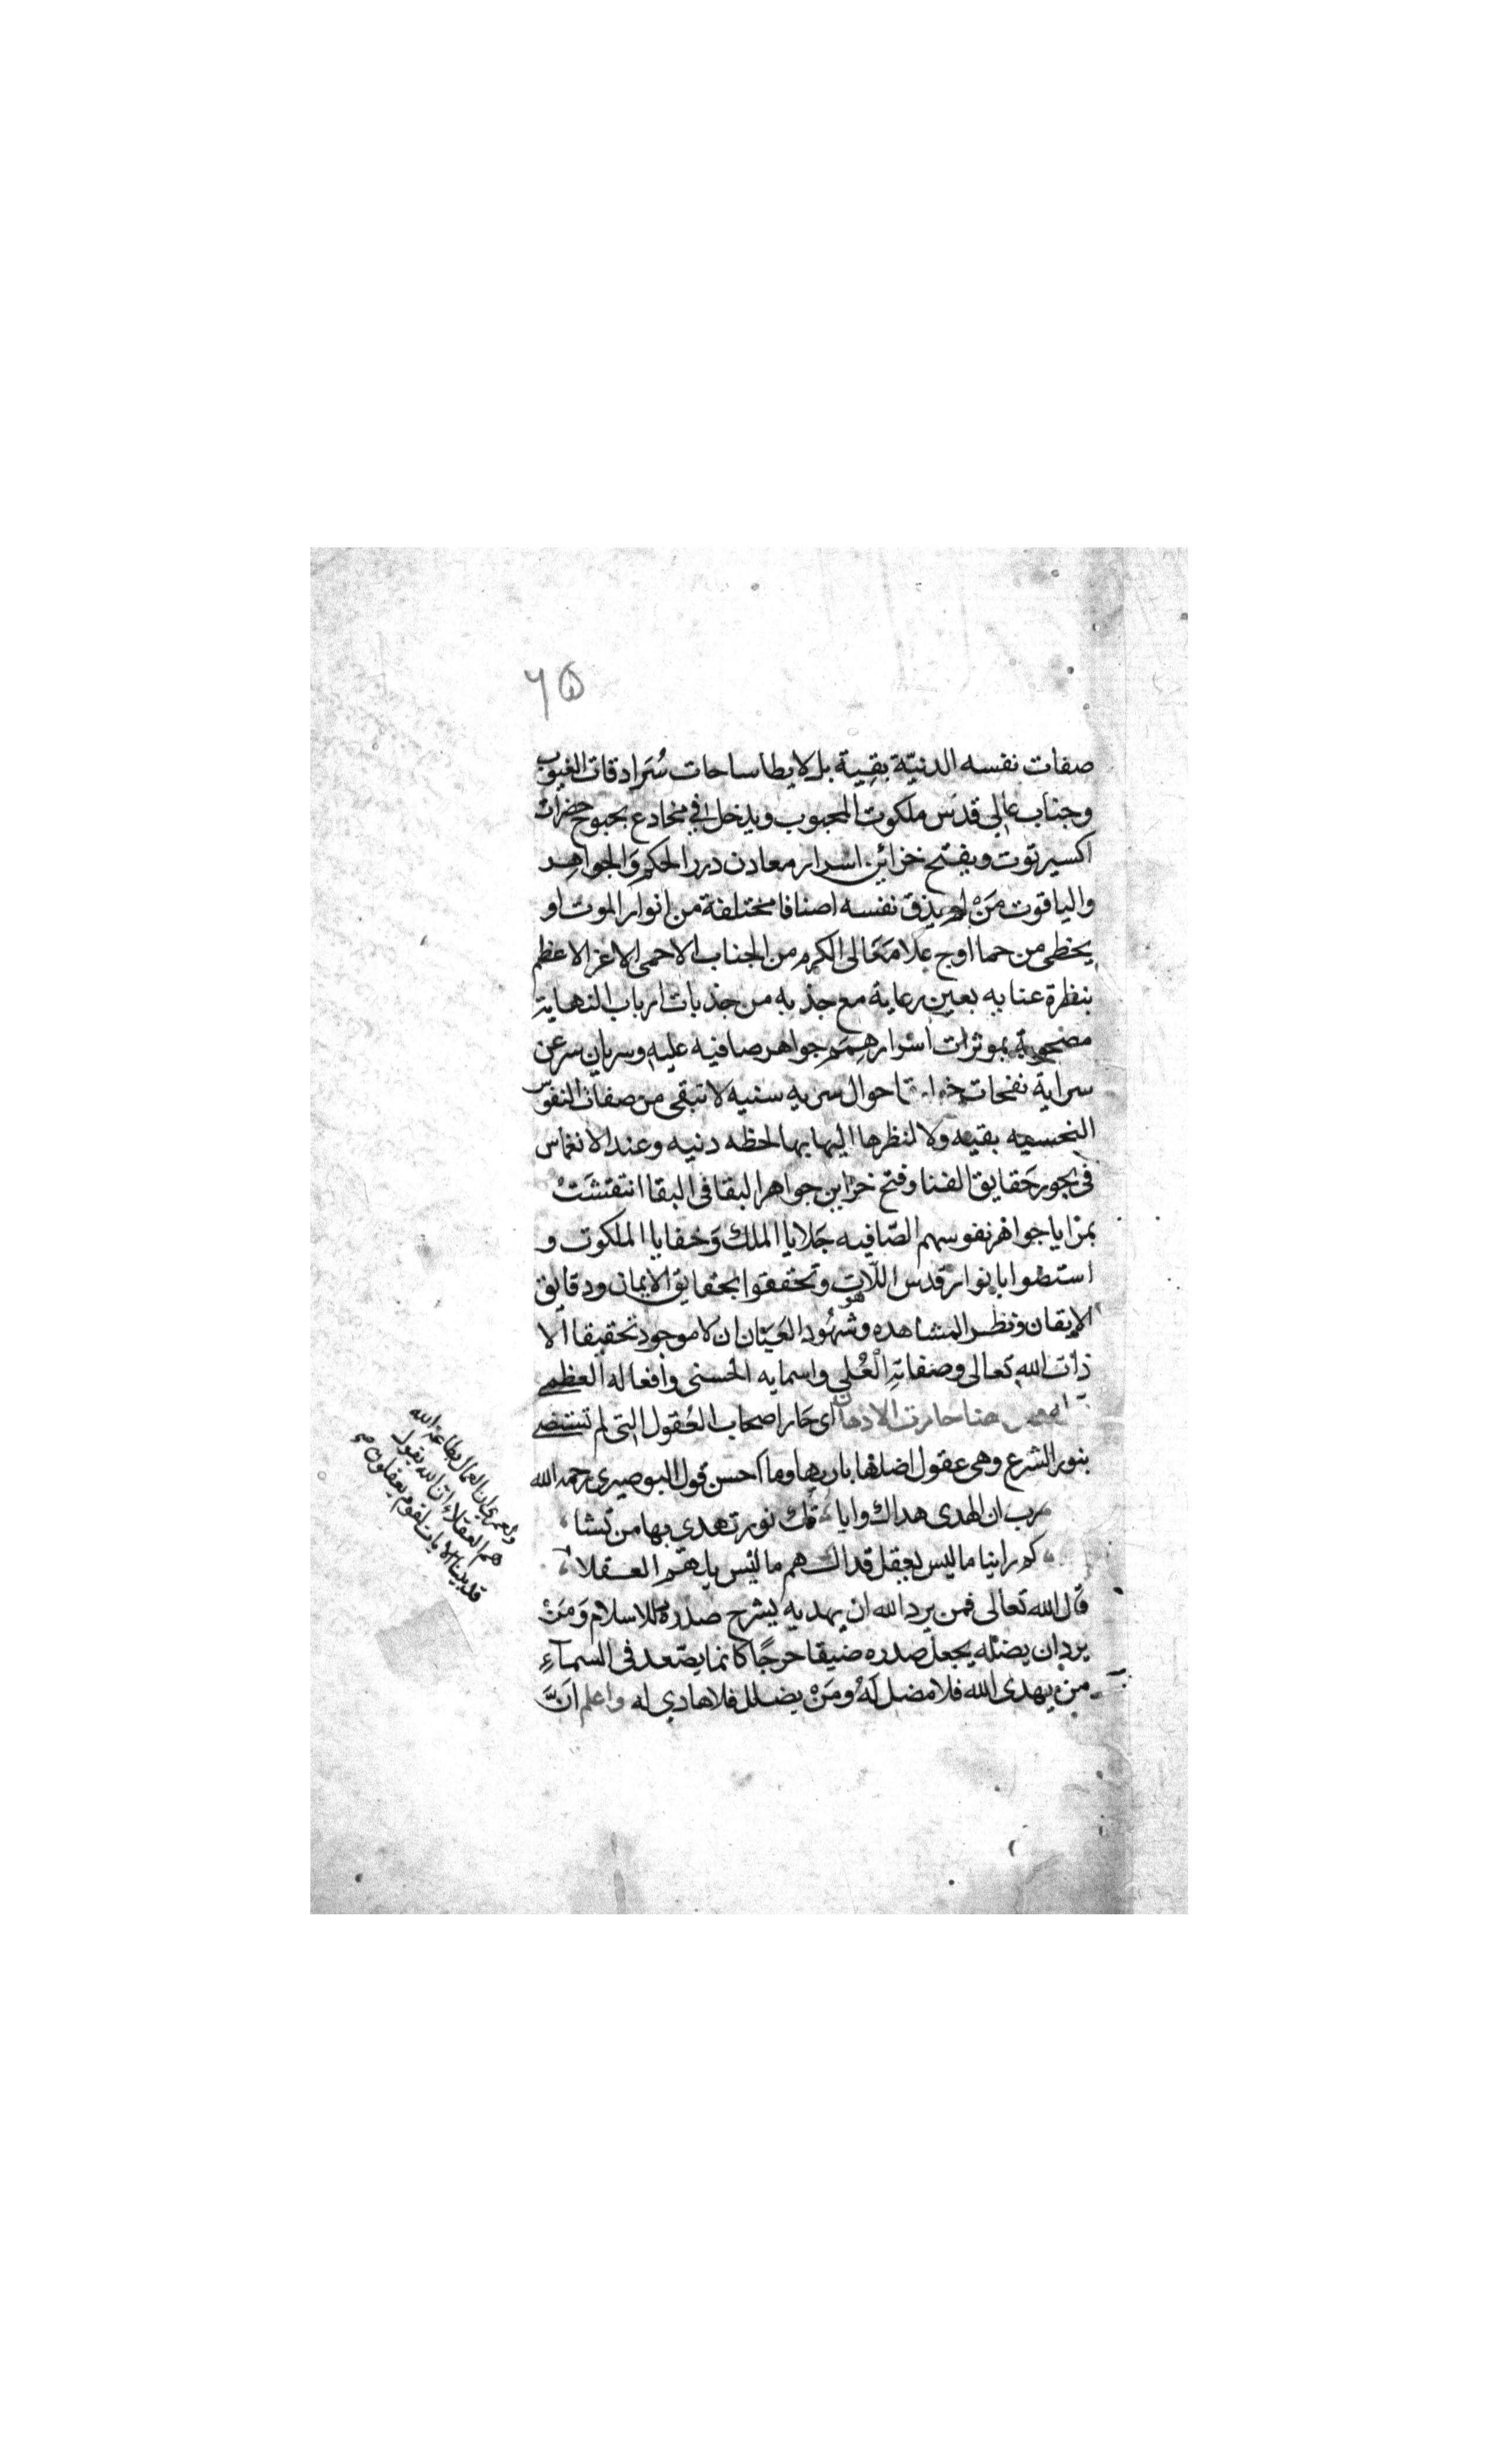 ٦٥
صفات نفسه الدنيّة بقيية بل لا يطا ساحات سُرَادقات الغيوب
وجناب عالي قدس ملكوت المحبوب ويدخل في مخادع بحبوح حضرات
اكسير توت ويفتح خزائن اسرار معادن درر الحكم وَالجواهر
والياقوت مَنْ لم يذق نفسه اصنافا مختلفة من انوار الموت او
يحظى من حما اوج علا مَعَالى الكرم من الجناب الاحمى الاعز الاعظم
بنظرة عنايه بعين رعاية مع جذبه من جذبات ارباب النهاية
بموثرات اسْرار هِمَمِ جواهر صافيه عليه وسريان سر عن
سراية نفحات احوال سريه سنيه لا تبقى من صفات النفوس
النحسيه بقيه ولا لنظرها اليها بها لحظه دنيه وعند الانغماس
في بحور حَقايق الفنا وفتح خزاين جواهر البقا في البقا انتقشَتْ
بمزايا جواهر نفوسهم الصّافيه جَلايا الملك وَخفايا الملكوت و
استضوا بانوار قدس اللّاهوت وتحققوا بحقايق الايمان ودقايق
الايقان ونظر المشاهده وشهُود العَيَان ان لا موجود تحقيقا الا
ذات الله تعالى وصفاتهِ الْعُلى واسمايه الحسنى وافعاله العظمى
هنا حارت الاذهان اى حَار اصحاب العُقول التى لم تستضى
بنور الشرع وهى عقول اضلها باريها وما احسن قول البوصيرى رحمه الله
رب ان الهدى هداك وايا تك نور تهدى بها من تشا
كم راينا ما ليس يعقل قد الهم ما ليْس يلهم العقلا
قال الله تعالى فمن يرد الله ان يهديه يشرح صدره للاسلام وَمَنْ
يرد ان يضله يجعل صدره ضيقا حرجًا كانما يصّعد فى السمآءِ
من يهدى الله فلا مضل لَهُ ومَنْ يضلل فلا هادي له واعلم انَّ
ولعمرى ان العمال بطاعة الله
هم العقلاء ان الله يقول
قد بينا الآيات لقوم يعقلون صح